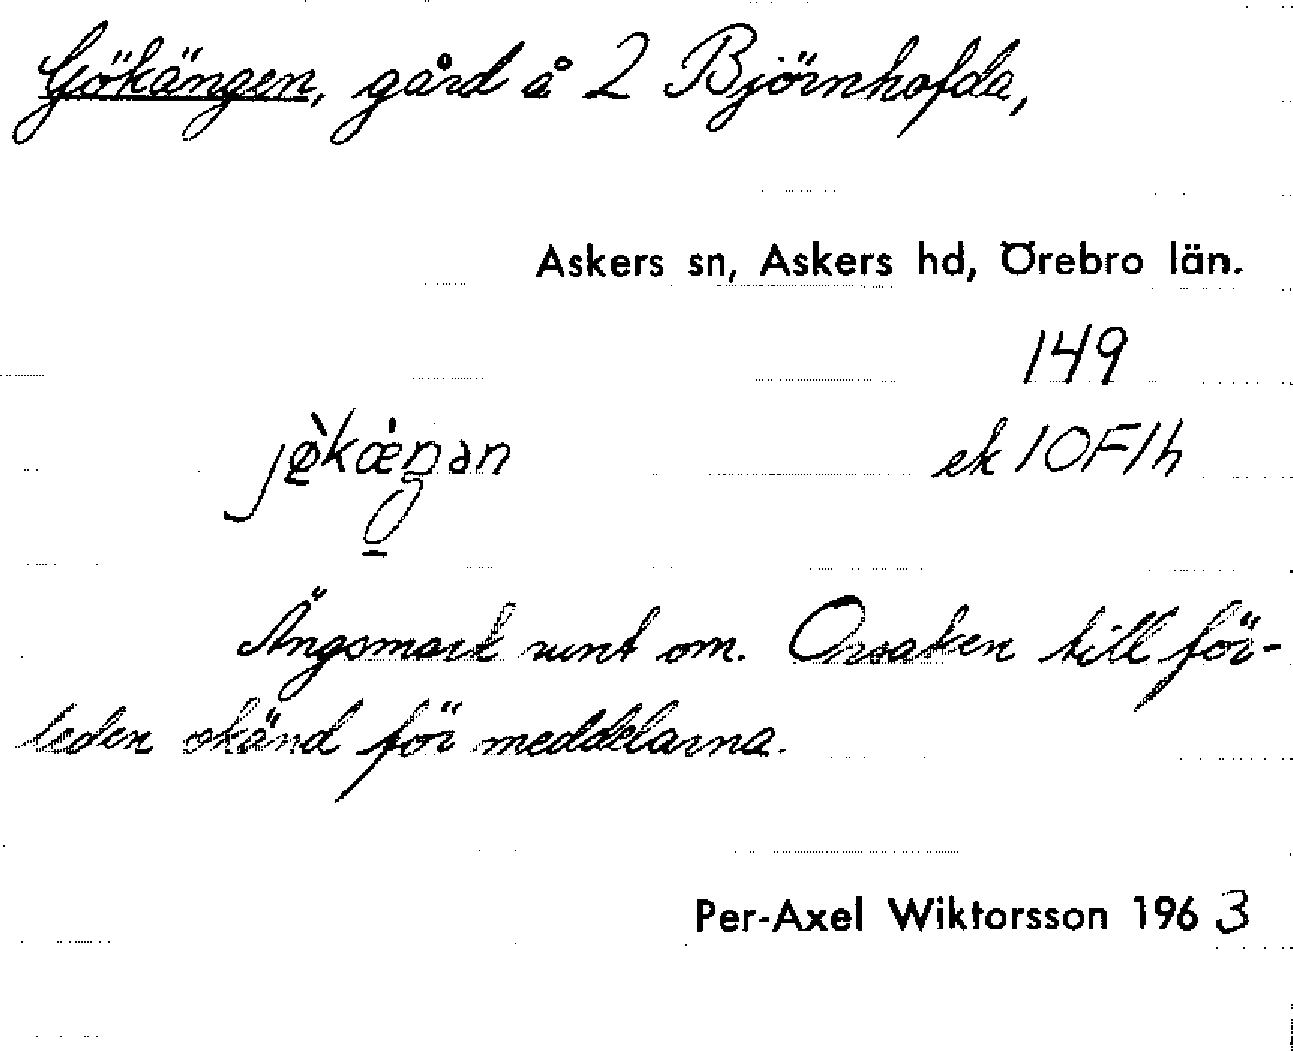 Gökängen, gård å 2 Björnhofda,
Askers sn, Askers hd, Örebro län.
149
jø̀kæŋən ek 10F1h
Ängsmark runt om. Orsaken till för-
leden okänd för meddelarna.
Per-Axel Wiktorsson 1963